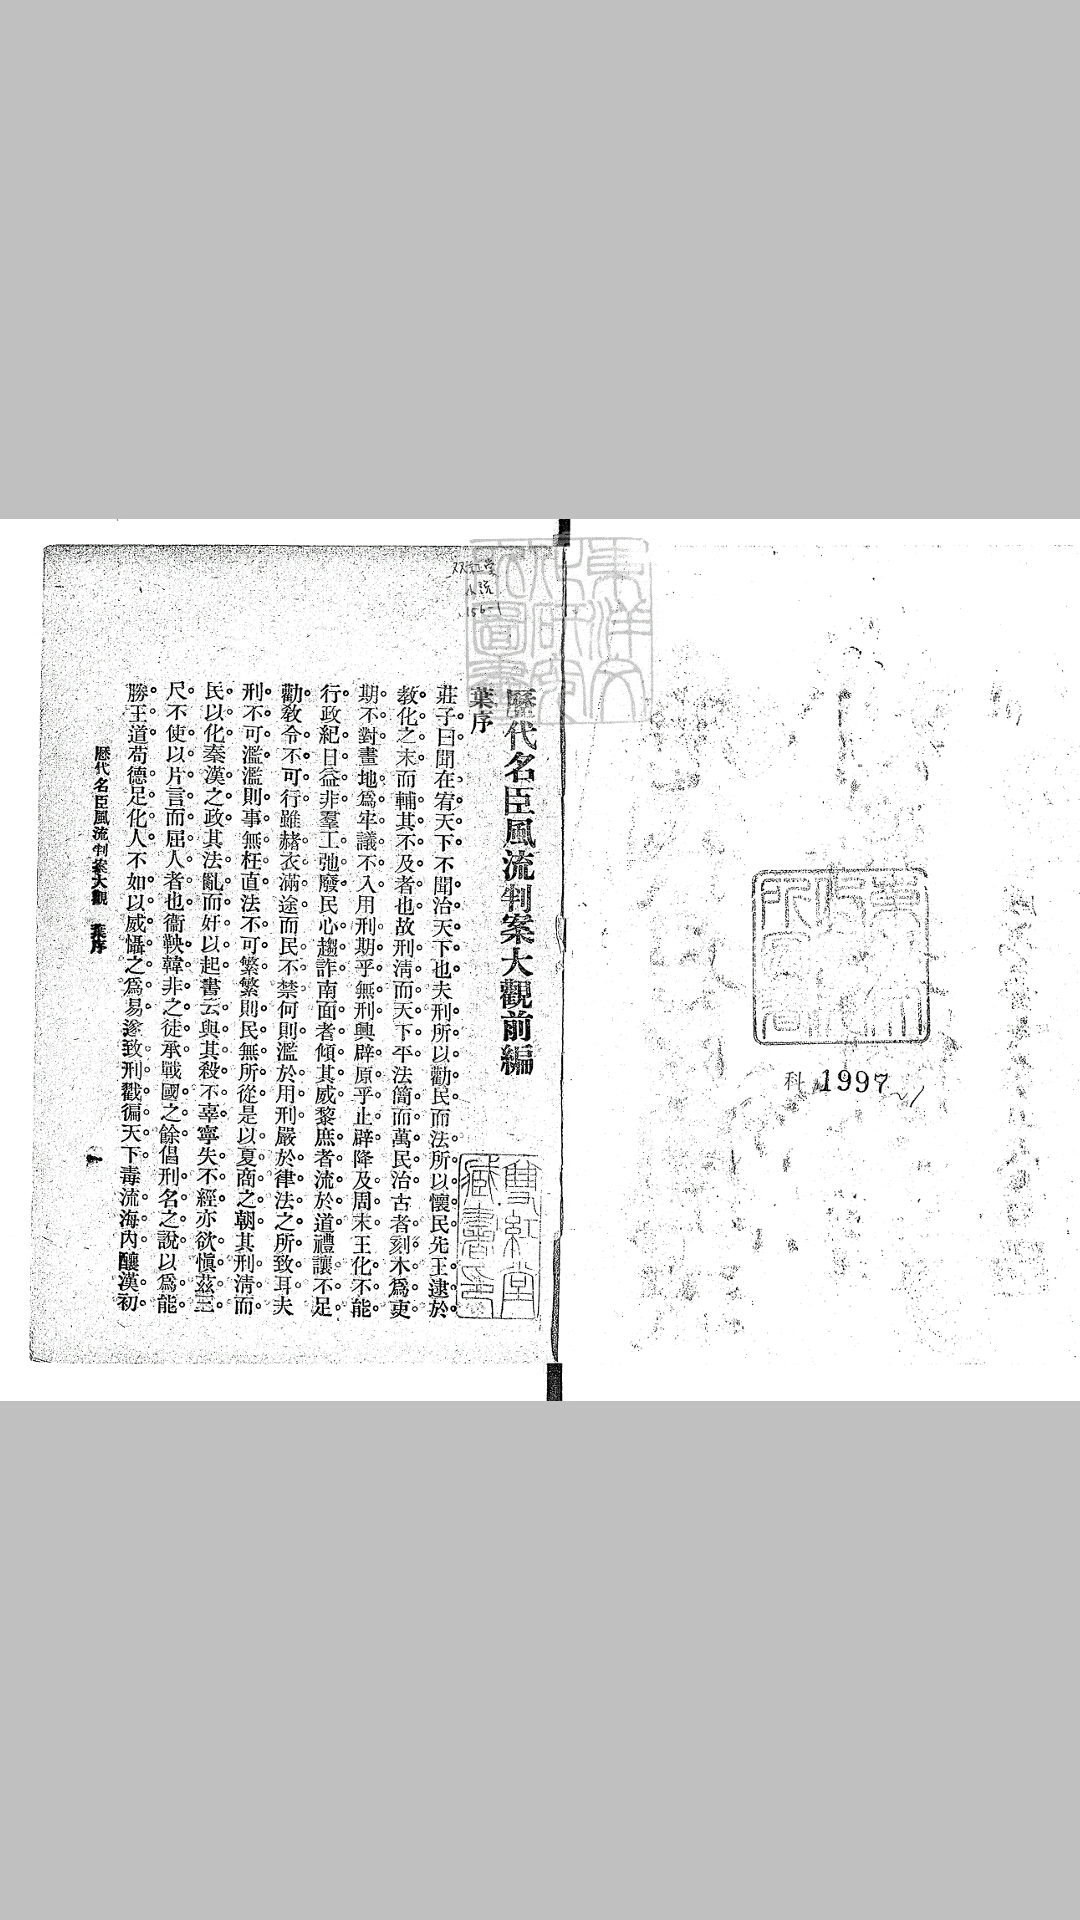 科 1997
歷代名臣風流判案大觀前編
葉序
莊子曰聞在宥天下不聞治天下也夫刑所以勸民而法所以懷民先王逮於
教化之末而輔其不及者也故刑清而天下平法簡而萬民治古者刻木爲吏
期不對畫地爲牢議不入用刑期乎無刑興辟原乎止辟降及周末王化不能
行政紀日益非羣工弛廢民心趨詐南面者傾其威黎庶者流於道禮讓不足
勸教令不可行雖赭衣滿途而民不禁何則濫於用刑嚴於律法之所致耳夫
刑不可濫濫則事無枉直法不可繁繁則民無所從是以夏商之朝其刑清而
民以化秦漢之政其法亂而奸以起書云與其殺不辜寧失不經亦欲慎茲三
尺不使以片言而屈人者也衞鞅韓非之徒承戰國之餘倡刑名之說以爲能
勝王道苟德足化人不如以威懾之爲易遂致刑戮徧天下毒流海內釀漢初
歷代名臣風流判案大觀 葉序
一
東洋文化研究所圖書
雙紅堂藏書印
双紅堂
小説
156-1